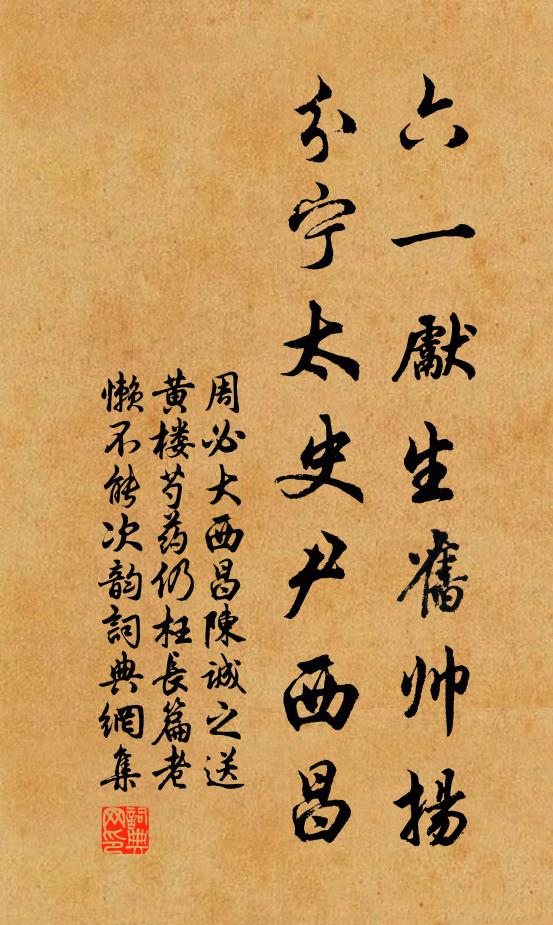 六一獻生舊帅揚
分宁太史尹西昌
周必大西昌陳誠之送
黄楼芍药仍枉長篇老
懒不能次韵詞典網集
詞典网印